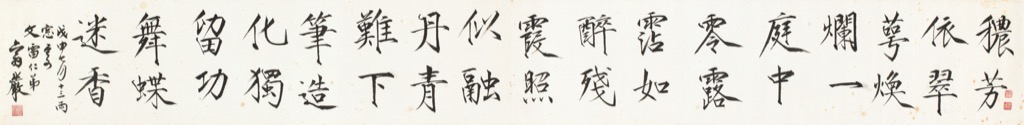 穠芳
依翠
萼煥
爛一
庭中
零露
霑如
醉殘
霞照
似融
丹青
難下
筆造
化獨
留功
舞蝶
迷香
戊申七月十三雨
窓
文雷仁弟
富巖